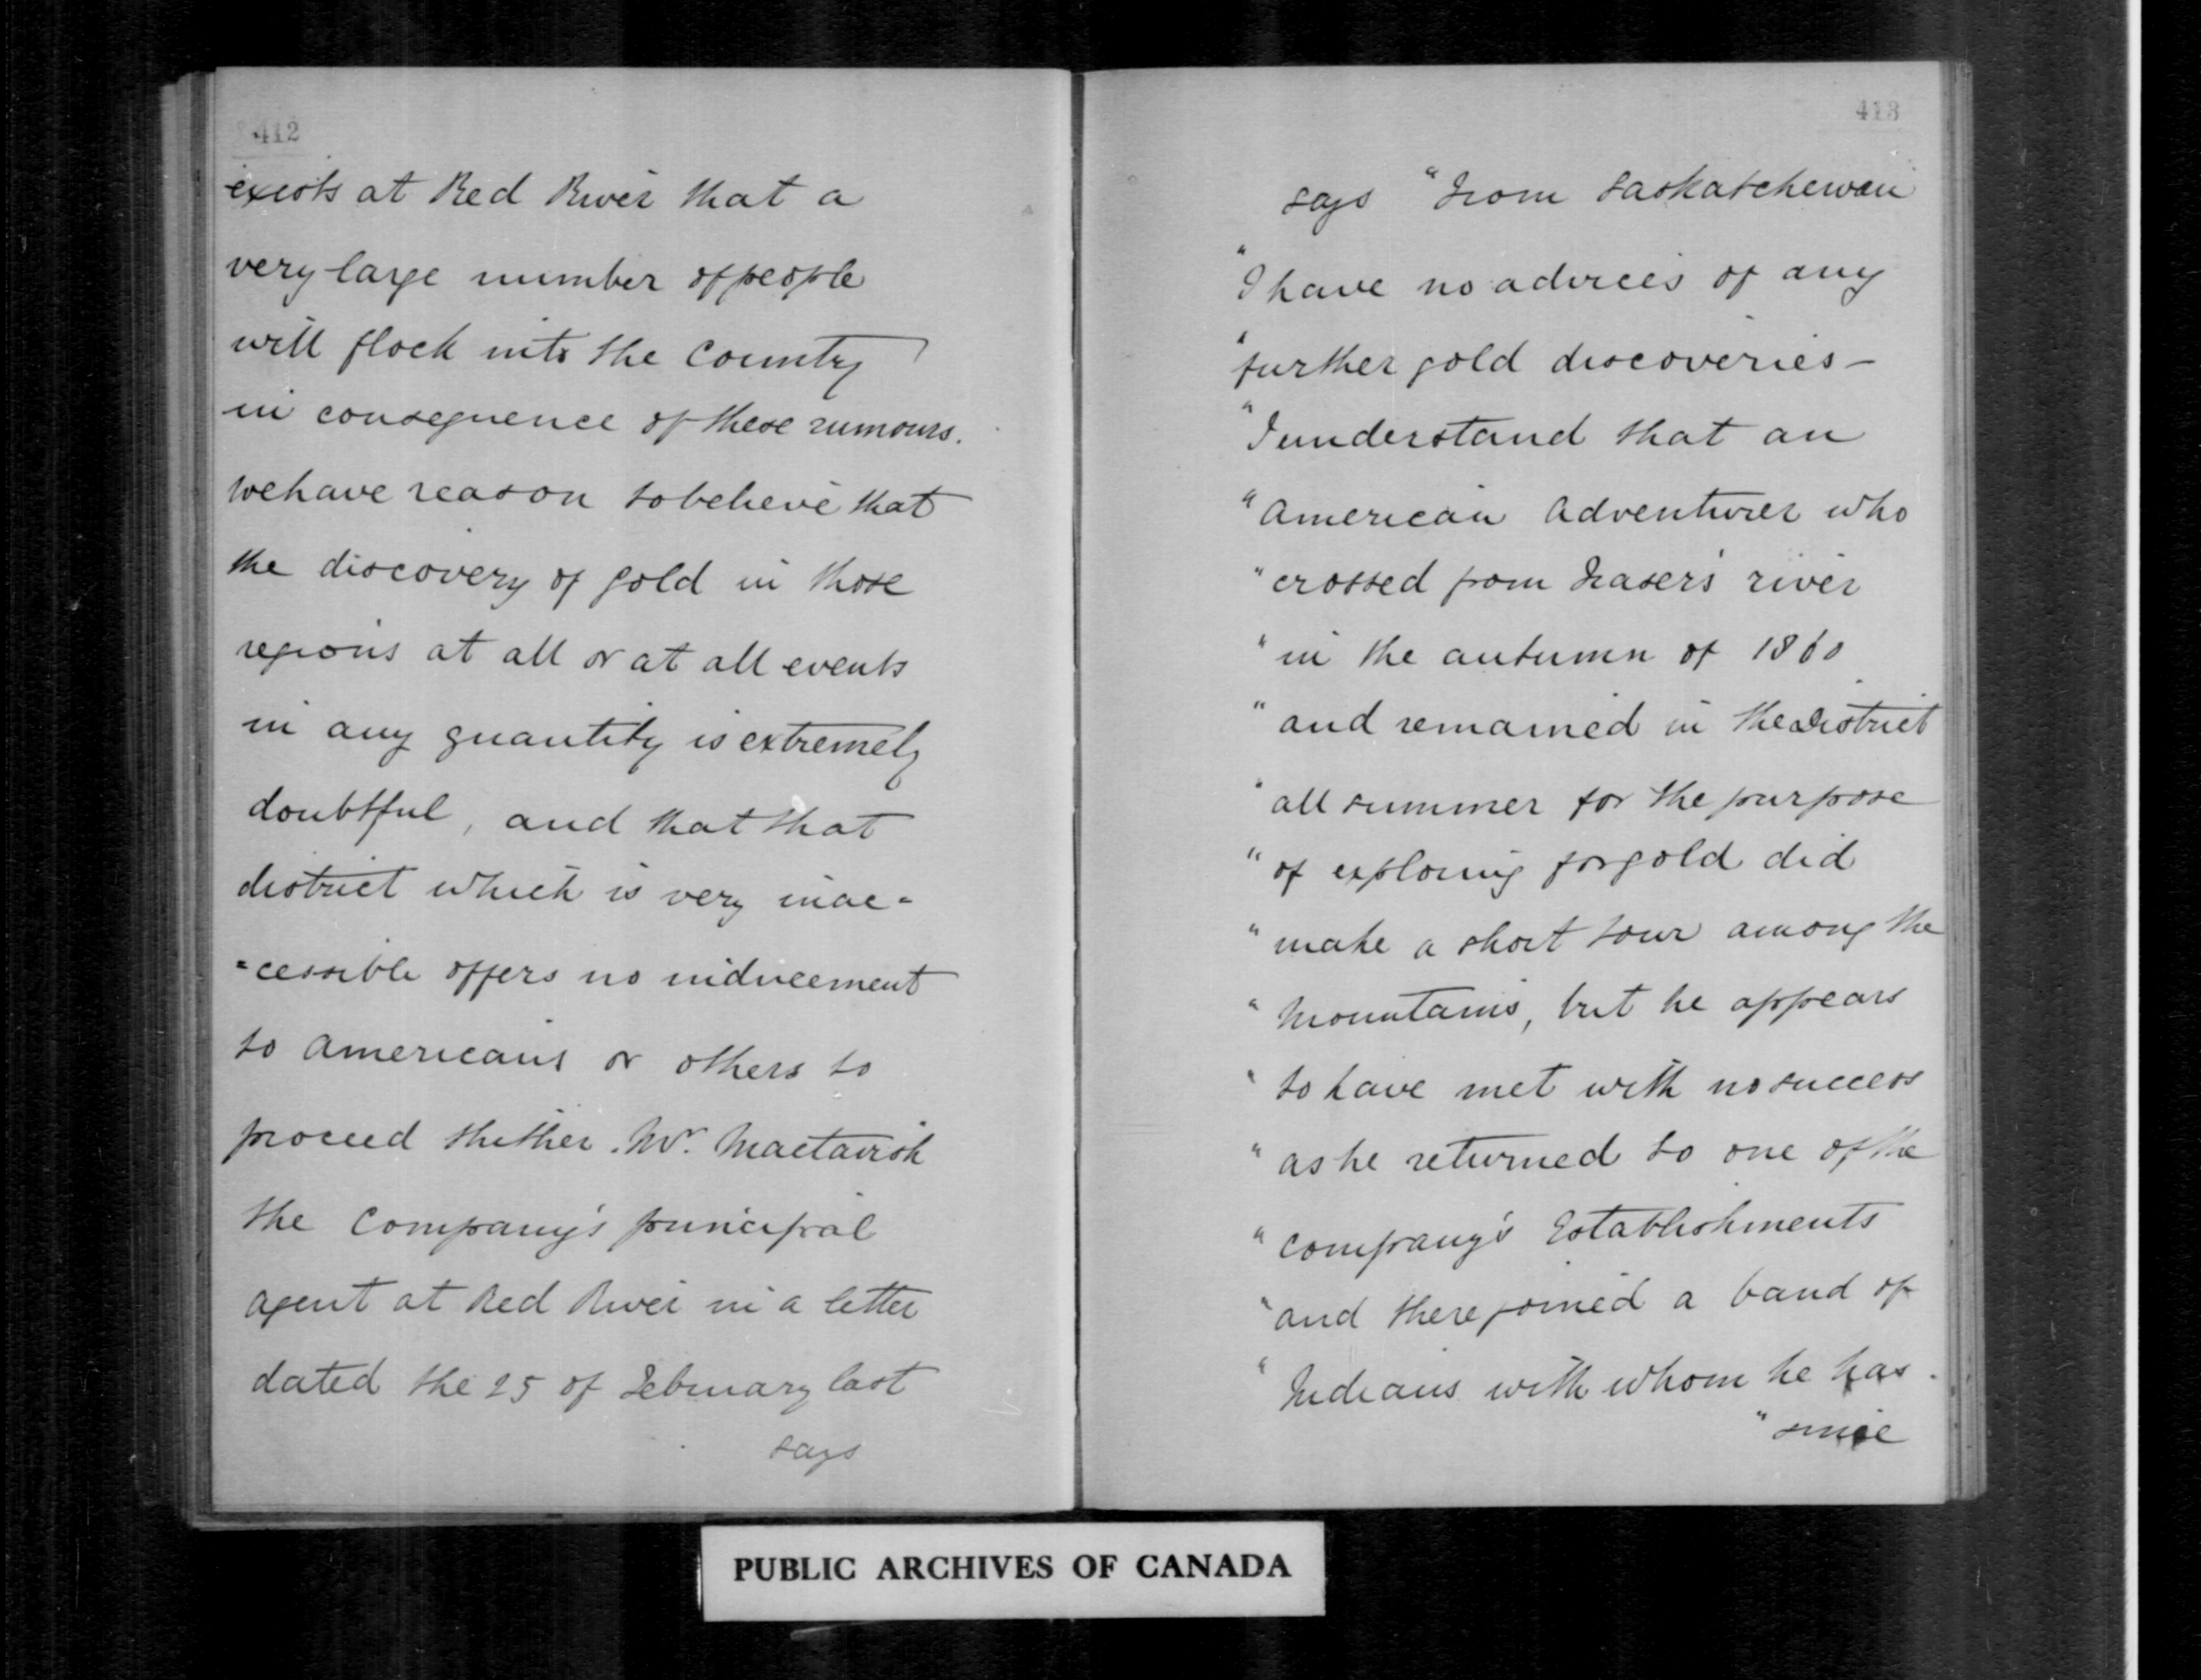 412
exists at Red River that a
very large number of people
will flock into the Country
in consequence of these rumours.
We have reason to believe that
the discovery of gold in those
regions at all or at all events
in any quantity is extremely
doubtful, and that that
district which is very inac-
-cessible offers no inducement
to Americans or others to
proceed thither. Mr. Mactavish
the Company's principal
agent at Red River in a letter
dated the 25 of February last
says
413
says "From Saskatchewan
"I have no advices of any
"further gold discoveries —
"I understand that an
"American Adventurer who
"crossed from Frasers river
"in the autumn of 1860
"and remained in the District
"all summer for the purpose
"of exploring for gold did
"make a short tour among the
"Mountains, but he appears
"to have met with no success
"as he returned to one of the
"Company's Establishments
"and there joined a band of
"Indians with whom he has
"since
PUBLIC ARCHIVES OF CANADA